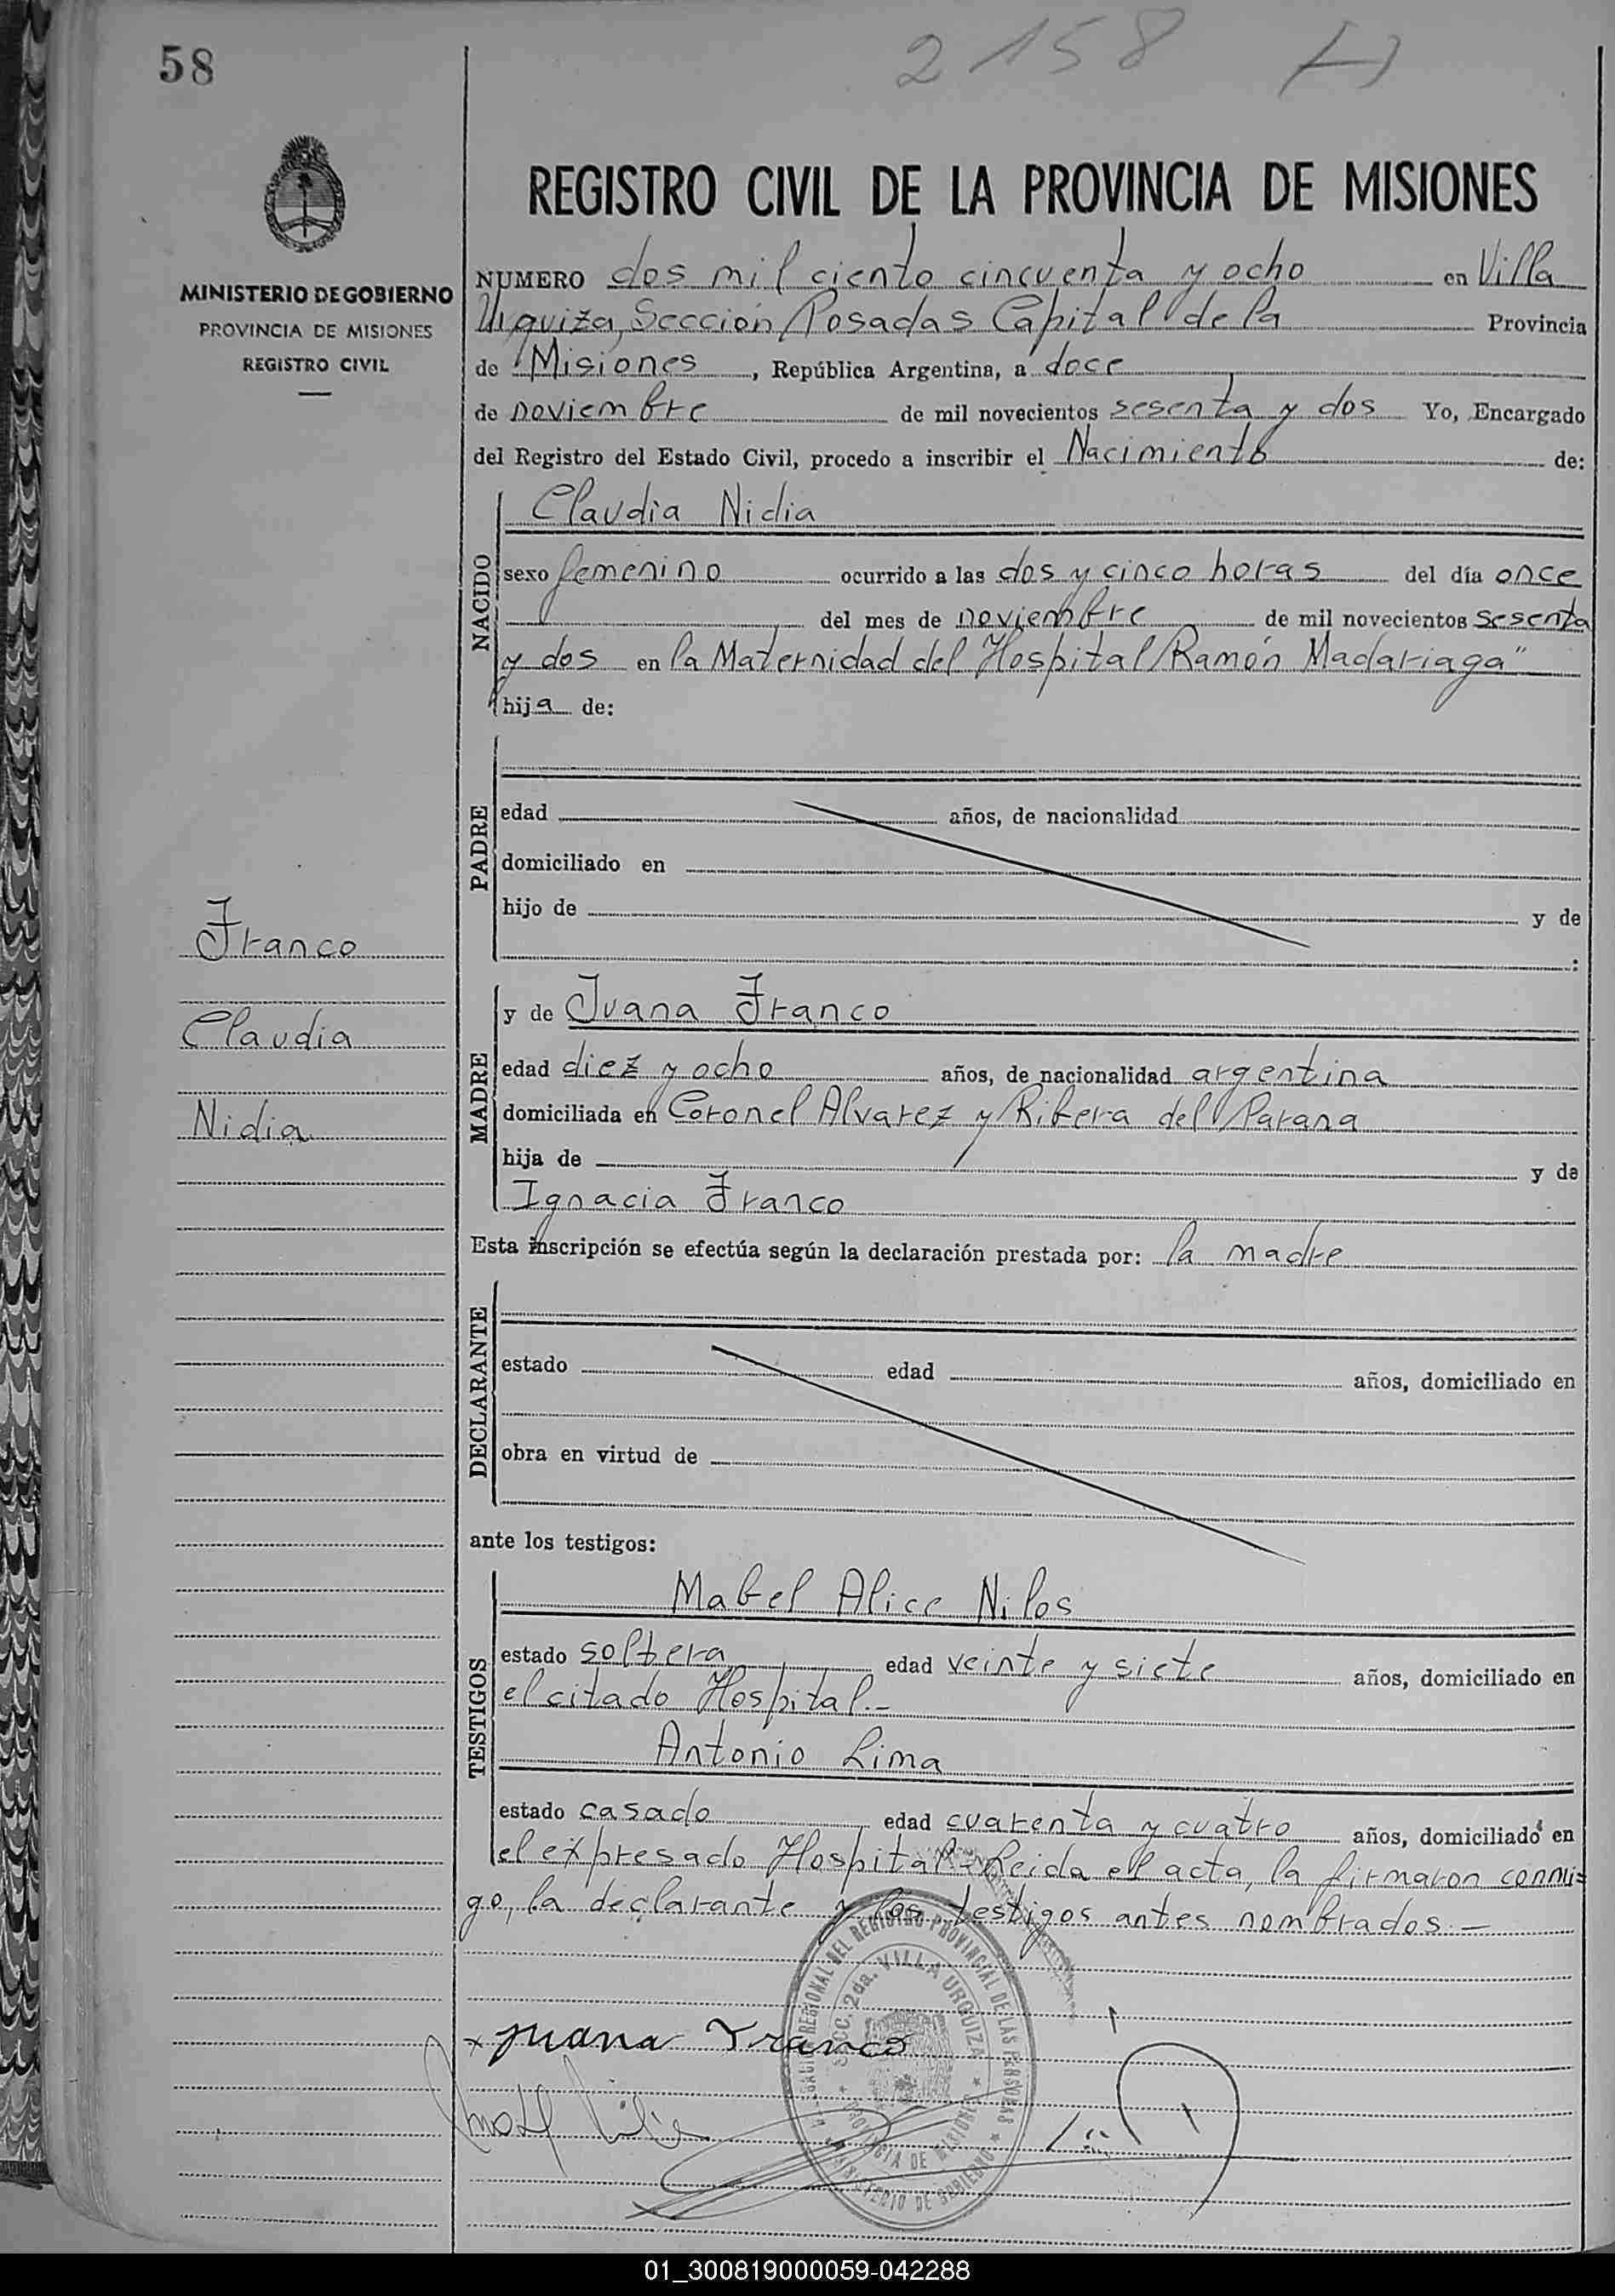 58
2158
MINISTERIO DE GOBIERNO
PROVINCIA DE MISIONES
REGISTRO CIVIL
Franco
Claudia
Nidia
REGISTRO CIVIL DE LA PROVINCIA DE MISIONES
NUMERO dos mil ciento cincuenta y ocho en Villa
Urquiza, Sección Posadas Capital de la Provincia
de Misiones, República Argentina, a doce
de noviembre de mil novecientos sesenta y dos Yo, Encargado
del Registro del Estado Civil, procedo a inscribir el Nacimiento de:
NACIDO
Claudia Nidia
sexo femenino ocurrido a las dos y cinco horas del día once
del mes de noviembre de mil novecientos sesenta
y dos en la Maternidad del Hospital Ramón Madariaga"
hija de:
PADRE
edad años, de nacionalidad
domiciliado en
hijo de y de
:
MADRE
y de Juana Franco
edad diez y ocho años, de nacionalidad argentina
domiciliada en Coronel Alvarez y Ribera del Parana
hija de y de
Ignacia Franco
Esta inscripción se efectúa según la declaración prestada por: la madre
DECLARANTE
estado edad años, domiciliado en
obra en virtud de
ante los testigos:
TESTIGOS
Mabel Alice Nilos
estado soltera edad veinte y siete años, domiciliado en
el citado Hospital.-
Antonio Lima
estado casado edad cuarenta y cuatro años, domiciliado en
el expresado Hospital - Leida el acta, la firmaron conmi=
go, la declarante y los testigos antes nombrados.-
x Juana Franco
REGIONAL DEL REGISTRO PROVINCIAL DE LAS PERSONAS
SECC. 2da. VILLA URQUIZA
PROVINCIA DE MISIONES
MINISTERIO DE GOBIERNO
01_300819000059-042288